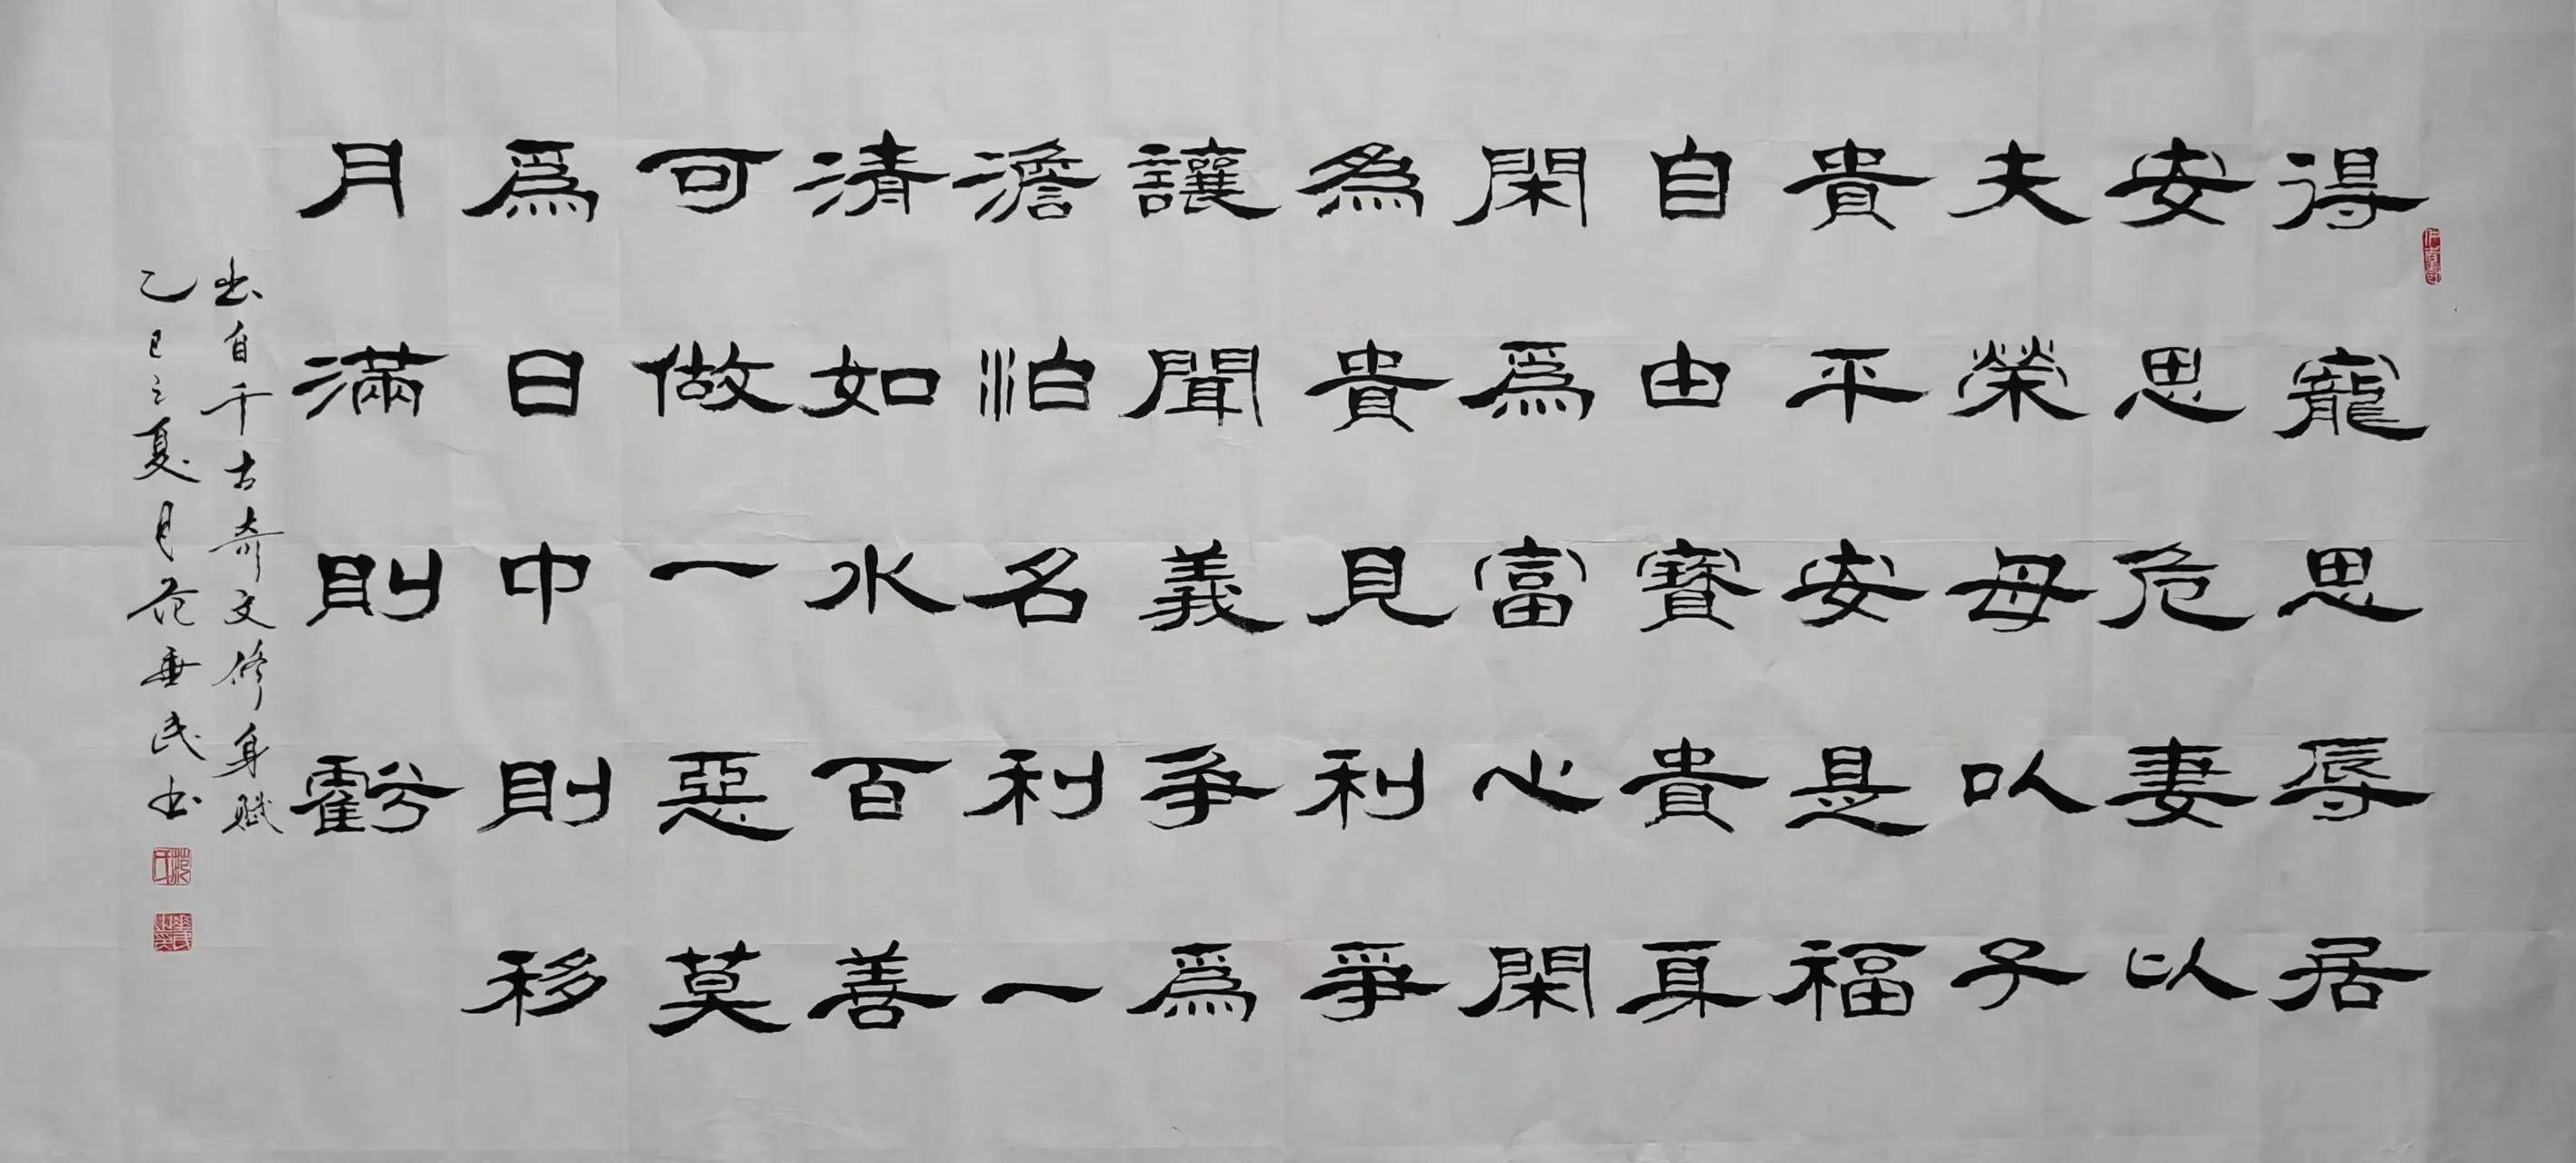 得寵思辱居
安思危妻以
夫榮母以子
貴平安是福
自由寶貴身
閑爲富心閑
為貴見利爭
讓聞義爭爲
澹泊名利一
清如水百善
可做一惡莫
爲日中則移
月滿則虧
出自千古奇文修身賦
乙巳之夏月范垂民书